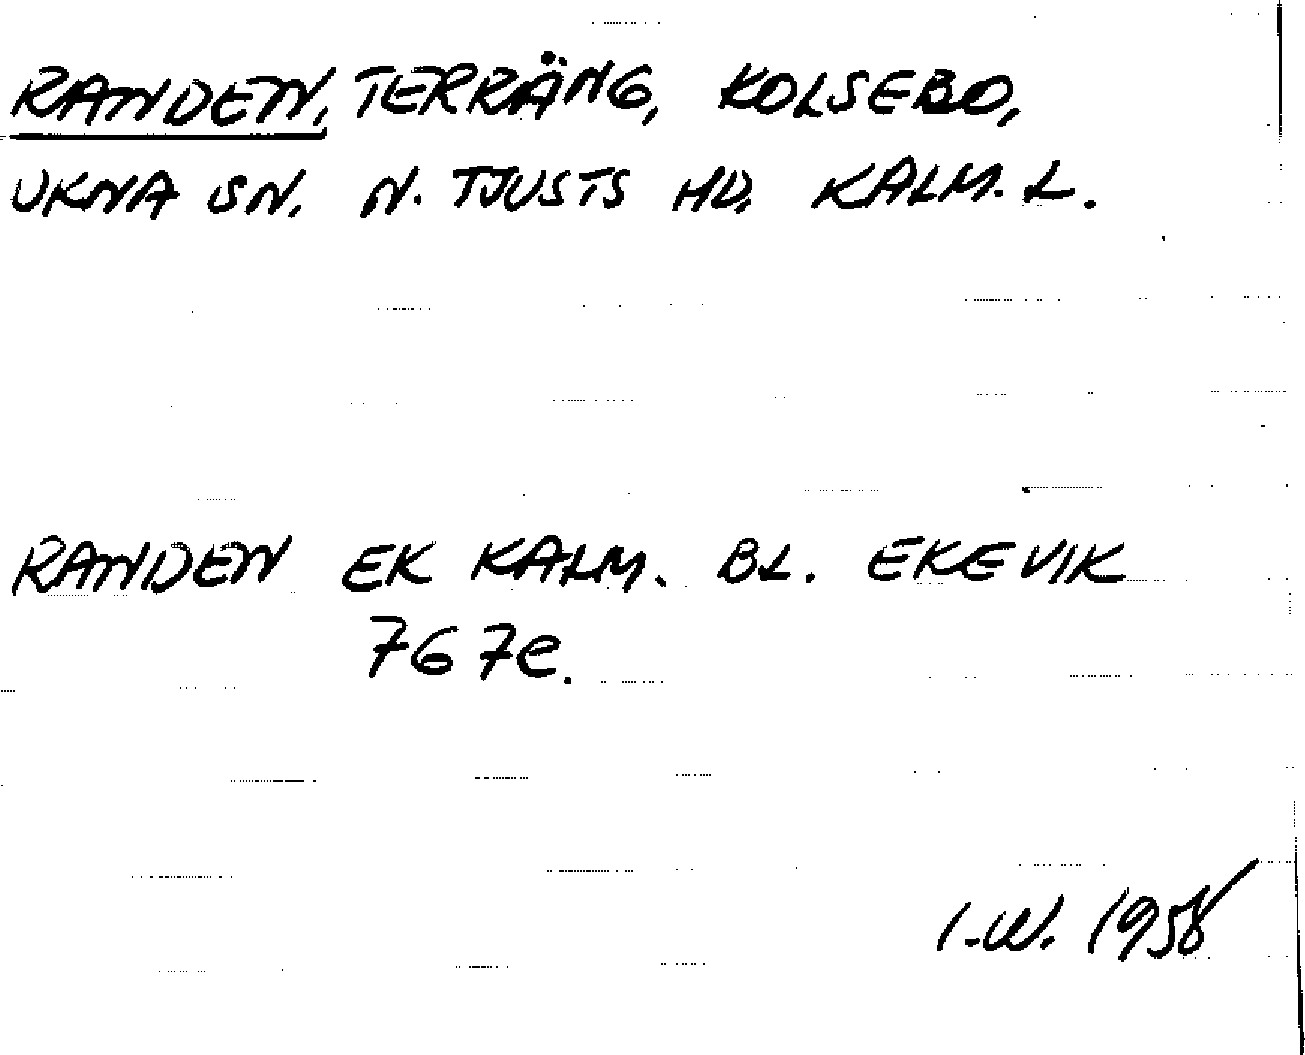 RANDEN, TERRÄNG, KOLSEBO,
UKNA SN. N. TJUSTS HD. KALM. L.
RANDEN EK KALM. BL. EKEVIK
767e.
I.W. 1958